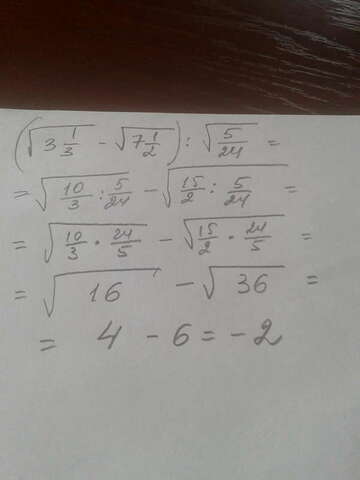 (√3 1/3 - √7 1/2) : √5/24 =
= √10/3 : 5/24 - √15/2 : 5/24 =
= √10/3 · 24/5 - √15/2 · 24/5 =
= √16 - √36 =
= 4 - 6 = - 2